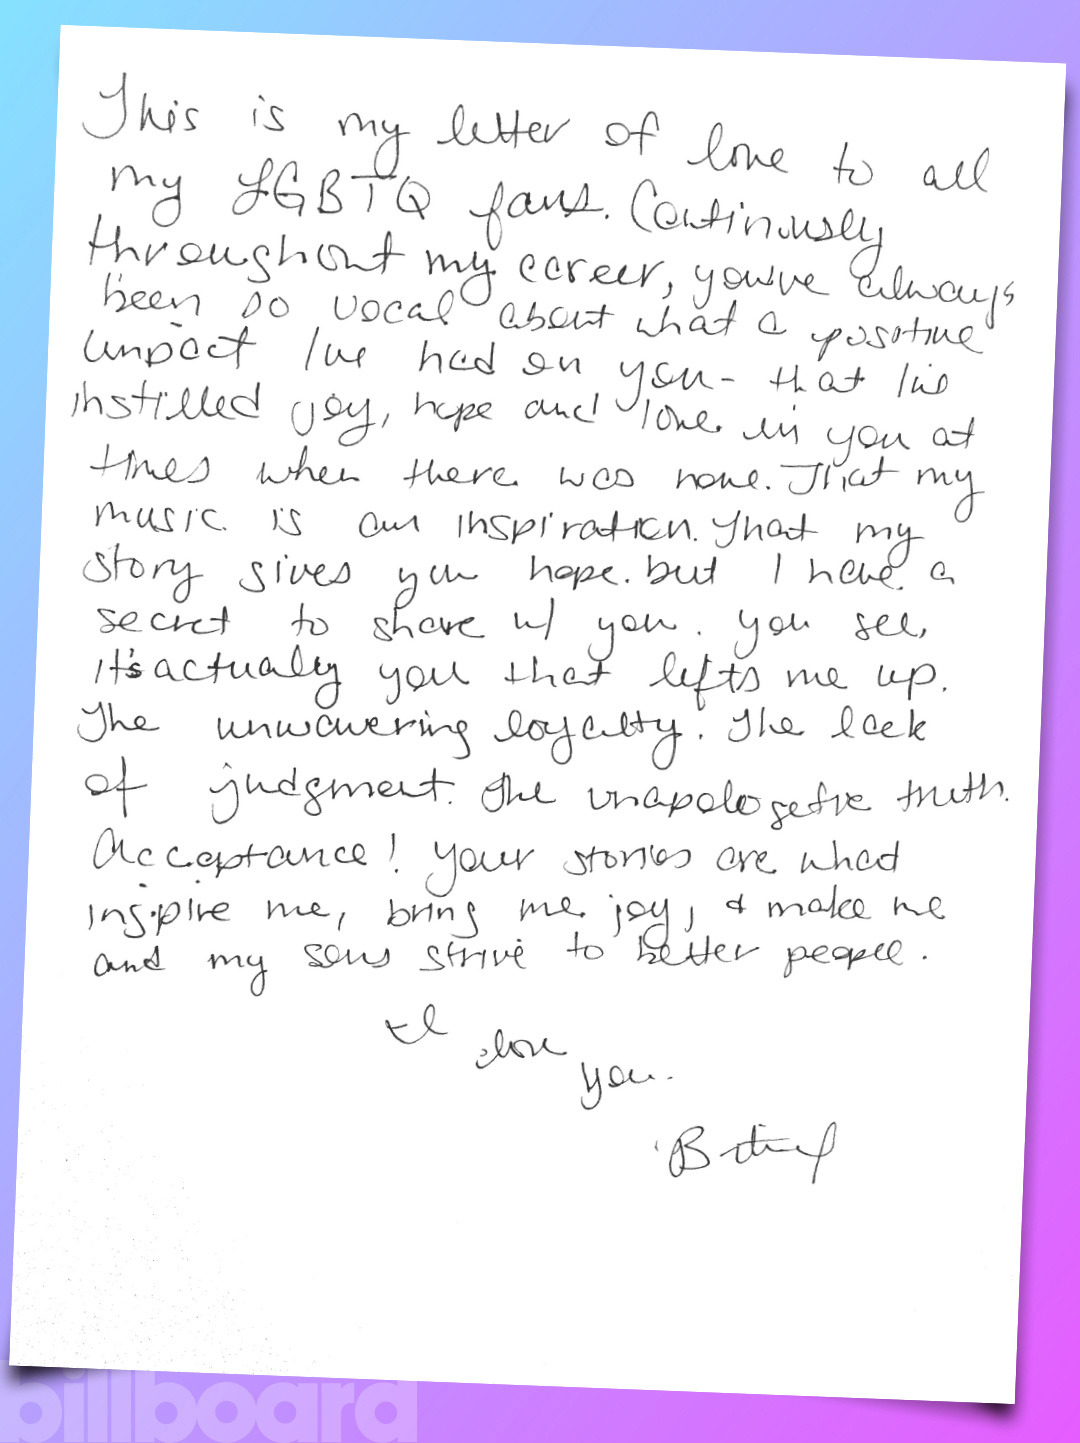 This is my letter of love to all
my LGBTQ fans. Continuously
throughout my career, you've always
been so vocal about what a positive
impact I've had on you - that I've
instilled joy, hope and love in you at
times when there was none. That my
music is an inspiration. That my
story gives you hope. but I have a
secret to share w/ you. you see,
it's actually you that lifts me up.
The unwavering loyalty. The lack
of judgment. The unapologetic truth.
Acceptance! your stories are what
inspire me, bring me joy, & make me
and my sons strive to better people.
I love
you.
billboard